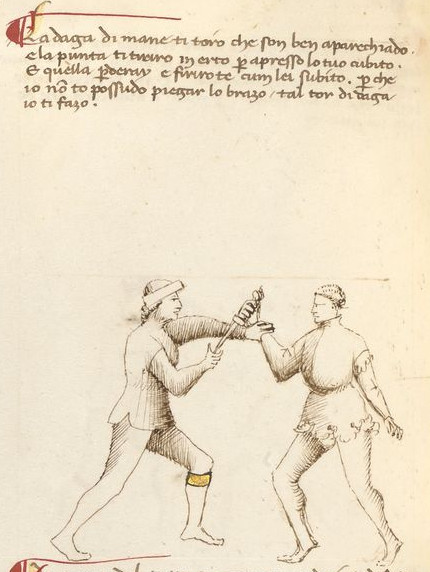 La daga di mane ti toro che son ben aparechiado.
e la punta ti tirero in erto p apresso lo tuo cubito.
E quella pderay e firirote cum lei subito. p che
io nō to possudo piegar lo brazo / tal tor di daga
io ti fazo.